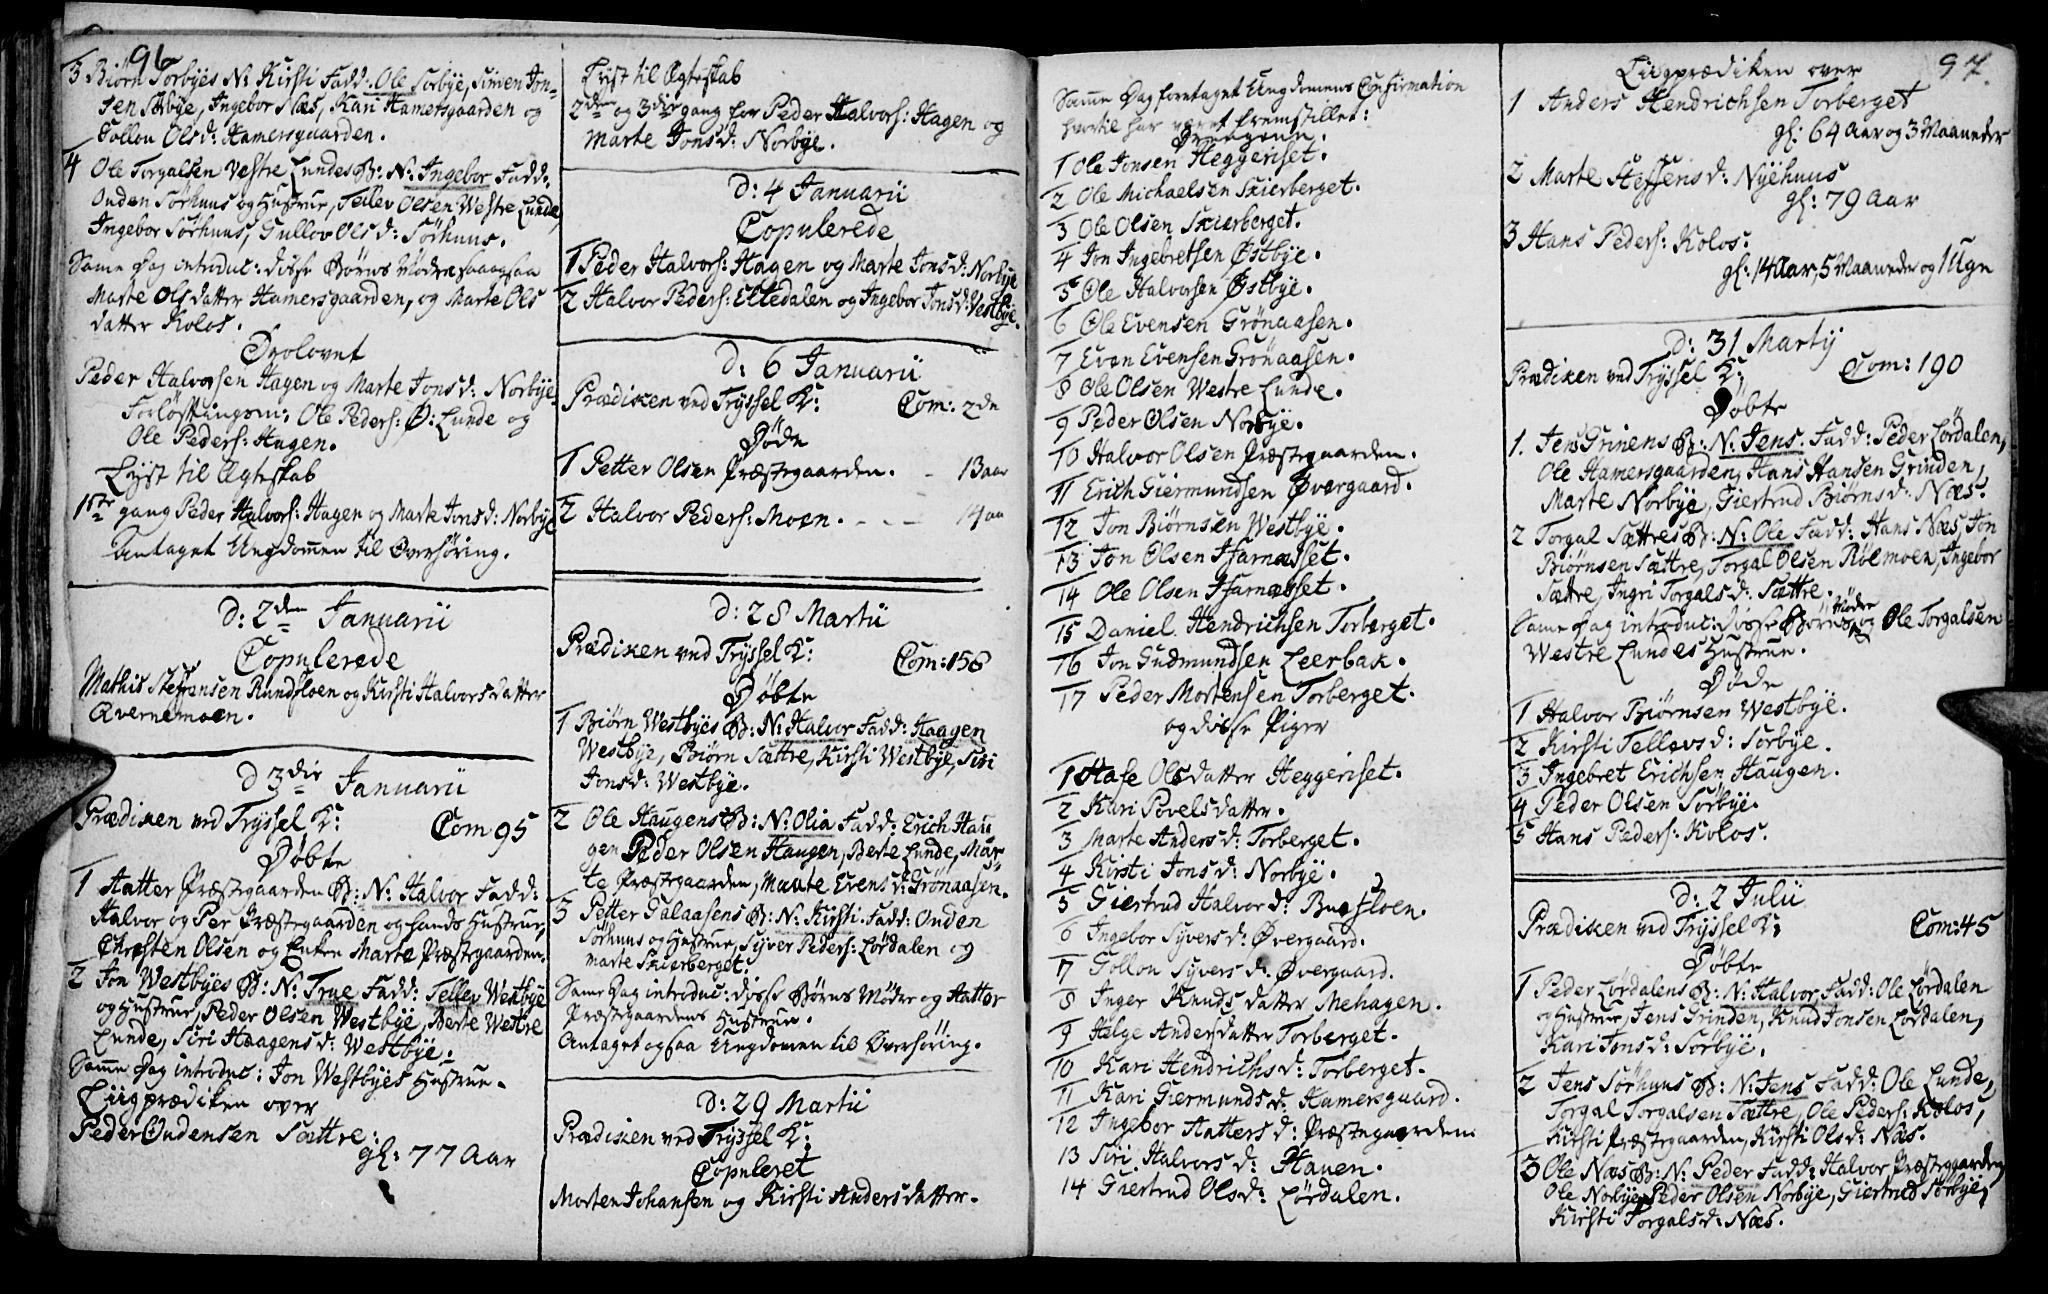 96
3 Biørn Sørbyes N: Kirsti Fadd: Ole Sørbye, Simen Jon-
sen Sørbye, Ingebor Næs, Kari Hamersgaarden og
Gollou Olsd: Hamersgaarden.
4 Ole Torgalsen Vestre Lundes B: N: Ingebor Fadd:
Ouden Sørhuus og Hustrue, Tellev Olsen Westre Lunde,
Ingebor Sørhuus, Gullov Olsd: Sørhuus.
Same Dag introduc: disse Børns Mødre saa ogsaa
Marte Olsdatter Hamersgaarden, og Marte Ols
datter Kolos.
Trolovet
Peder Halvorsen Hagen og Marte Jonsd: Norbye.
Forløftingsm: Ole Peders: Ø: Lunde og
Ole Peders: Hagen.
Lyst til Ægteskab
1ste gang Peder Halvors: Hagen og Marte Jonsd: Norbye
Antaget Ungdommen til Overhøring.
D: 2den Januarii
Copulerede
Mathis Steffensen Rundfloen og Kirsti Halvorsdatter
Qvernemoen.
D 3die Januarii
Prædiken ved Tryssel K:
Com 95
Døbte
1 Hatter Præstegaarden B: N: Halvor Fadd:
Halvor og Per Præstegaarden og hands Hustrue,
Christen Olsen og Enken Marte Præstegaarden.
2 Jon Westbyes B: N: True Fadd: Tellev Westbye
og Hustrue, Peder Olsen Westbye, Berte Westre
Lunde, Siri Haagensd: Westbye.
Samme Dag introduc: Jon Westbyes Hustrue.
Liigprædiken over
Peder Oudensen Sættre:
gl: 77 Aar
Lyst til Ægteskab
2den og 3die gang for Peder Halvors: Hagen og
Marte Jonsd: Norbye.
D: 4 Januarii
Copulerede
1 Peder Halvors: Hagen og Marte Jonsd: Norbye
2 Halvor Peders: Eltedalen og Ingebor Jonsd: Vestbye.
D: 6 Januarii
Prædiken ved Tryssel K:
Com: 2de
Døde
1 Petter Olsen Præstegaarden. - 13 aar
2 Halvor Peders: Moen. - - - 14 aa
D: 28 Martii
Prædiken ved Tryssel K:
Com: 158
Døbte
1 Biørn Westbyes B: N: Halvor Fadd: Haagen
Westbye, Biørn Sættre, Kirsti Westbye, Siri
Jonsd: Westbye.
2 Ole Haugens B: N: Olia Fadd: Erich Hau
gen Peder Olsen Haugen, Berte Lunde, Mar-
te Præstegaarden, Maute Evensd: Grønaasen.
3 Petter Galaasens B: N: Kirsti. Fadd: Ouden
Sørhuus og Hustrue, Syver Peders: Lørdalen og
Marte Skierberget.
Same Dag introduc: disse Børns Mødre og Hatter
Præstgaardens Hustrue.
Antaget ogsaa Ungdomen til Overhøring.
D: 29 Martii
Prædiken ved Tryssel K:
Copuleret
Morten Johansen og Kirsti Andersdatter.
Samme Dag foretaget Ungdomens Confirmation
hvortil har været fremstillet:
Drengene.
1 Ole Jonsen Heggeriset.
2 Ole Michaelsen Skierberget.
3 Ole Olsen Skierberget.
4 Jon Ingebretsen Østbye.
5 Ole Halvorsen Østbye.
6 Ole Evensen Grønaasen.
7 Even Evensen Grønaasen.
8 Ole Olsen Westre Lunde.
9 Peder Olsen Norbye.
10 Halvor Olsen Præstegaarden.
11 Erich Giermundsen Øvergaard.
12 Jon Biørnsen Westbye.
13 Jon Olsen Jfarnæsset.
14 Ole Olsen Jfarnæsset.
15 Daniel Hendrichsen Torberget.
16 Jon Gudmundsen Leerbak.
17 Peder Mortensen Torberget.
og disse Piger
1 Hafe Olsdatter Heggeriset.
2 Kari Povelsdatter.
3 Marte Andersd: Torberget.
4 Kirsti Jonsd: Norbye.
5 Giertrud Halvord: Buesloen.
6 Ingebor Syversd: Øvergaard.
7 Gollou Syversd: Øvergaard.
8 Inger Knudsdatter Mehagen.
9 Helge Andersdatter Torberget.
10 Kari Hendrichsd: Torberget.
11 Kari Giermundsd: Hamersgaard.
12 Ingebor Hattersd: Præstegaarden
13 Siri Halvorsd: Hauen.
14 Giertrud Olsd: Lørdalen.
97.
Liigprædiken over
1 Anders Hendrichsen Torberget
gl: 64 Aar og 3 Maaneder
2 Marte Steffensd: Nyehuus
gl: 79 Aar
3 Hans Peders: Kolos:
gl: 14 Aar, 5 Maaneder og 1 Uge
D: 31 Martij
Prædiken ved Tryssel K:
Com: 190
Døbte
1. Jens Grinens B: N: Jens. Fadd: Peder Lørdalen,
Ole Hamersgaarden, Hans Hansen Grinden,
Marte Norbye, Giertrud Biørnsd: Næs.
2 Torgal Sættres B: N: Ole Fadd: Hans Næs, Jon
Biørnsen Sættre, Torgal Olsen Rølmoen, Ingebor
Sættre, Ingri Torgalsd: Sættre.
Same Dag introduc: disse Børns Mødre og Ole Torgalsen
Westre Lundes Hustrue.
Døde
1 Halvor Biørnsen Westbye.
2 Kirsti Tellevsd: Sørbye.
3 Ingebret Erichsen Haugen.
4 Peder Olsen Sørbye.
5 Hans Peders: Kolos.
D: 2 Julii
Prædiken ved Tryssel K:
Com: 45
Døbte
1 Peder Lørdalens B: N: Halvor Fadd: Ole Lørdalen
og Hustrue, Jens Grinden, Knud Jonsen Lørdalen,
Kari Jonsd: Sørbye.
2 Jens Sørhuus B: N: Jens Fadd: Ole Lunde,
Torgal Torgalsen Sættre, Ole Peders: Kolos,
Kirsti Præstegaarden, Kirsti Olsd: Næs.
3 Ole Næs B: N: Peder Fadd: Halvor Præstegaarden,
Ole Norbye, Peder Olsen Norbye, Giertrud Sørbye,
Kirsti Torgalsd: Næs.